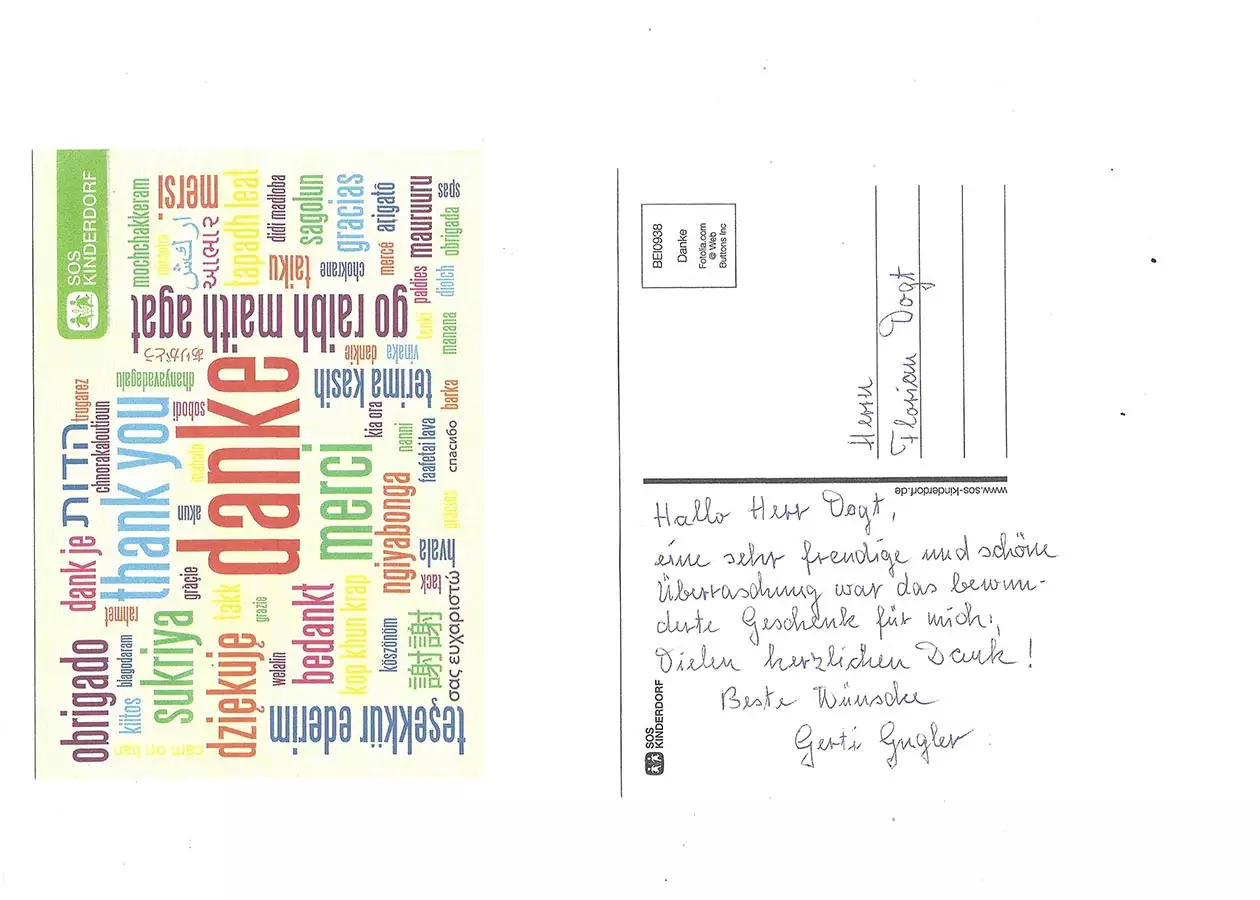 SOS
KINDERDORF
mochchakkeram
mersi
આભાર
tapadh leat
didi madloba
sagolun
gracias
arigatô
mauruuru
spas
obrigada
mercé
chokrane
taiku
paldies
diolch
go raibh maith agat
ありがとう
dankie
vinaka
tenki
manana
dhanyavadagalu
terima kasih
trugarez
תודה
chnorakaloutioun
thank you
sobodi
danke
kia ora
barka
nanni
faafetai lava
спасибо
mahalo
akun
merci
ngiyabonga
gracias
hvala
tack
dank je
rahmet
grație
takk
grazie
bedankt
kop khun krap
köszönöm
謝謝
σας ευχαριστώ
obrigado
blagodaram
kiitos
sukriya
dziękuję
welalin
cám on ban
teşekkür ederim
BEI0938
Danke
Fotolia.com
@ Web
Buttons Inc
Herrn
Florian Vogt
www.sos-kinderdorf.de
Hallo Herr Vogt,
eine sehr freudige und schöne
Überraschung war das bewun-
derte Geschenk für mich!,
Vielen herzlichen Dank!
Beste Wünsche
Gerti Gugler
SOS
KINDERDORF